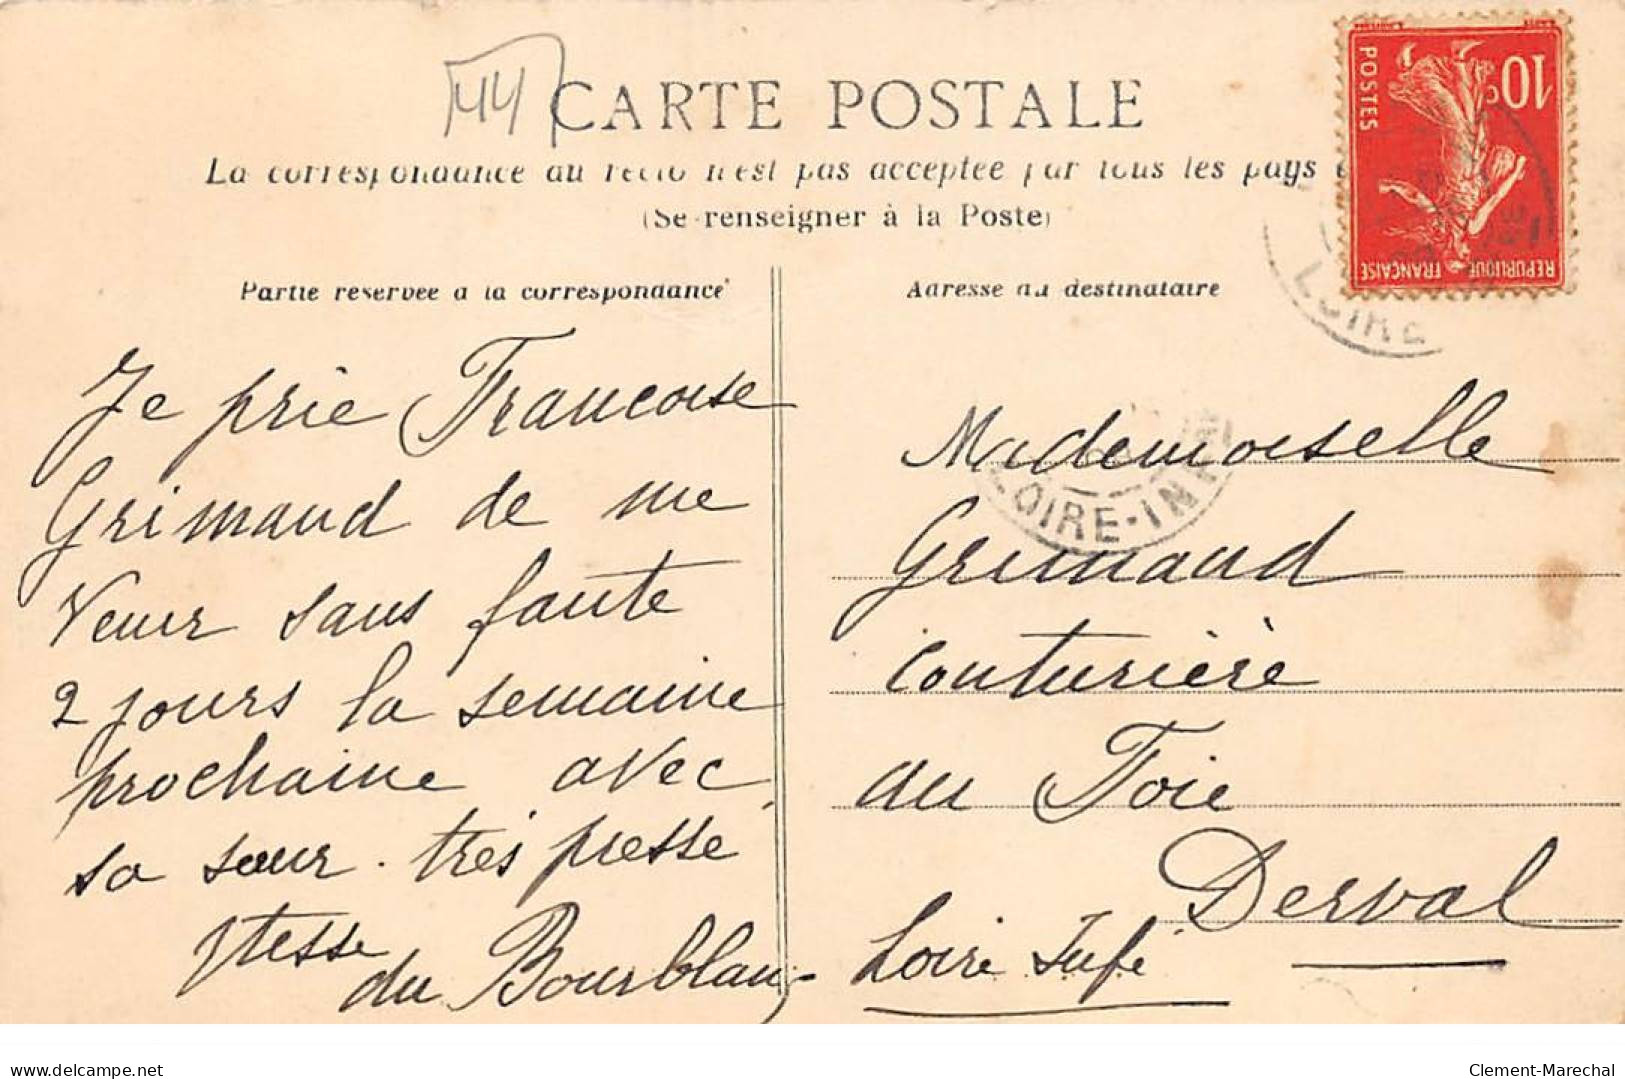 44
CARTE POSTALE
La correspondance au recto n'est pas acceptée par tous les pays
(Se renseigner à la Poste)
Partie réservée à la correspondance
Adresse du destinataire
10c
POSTES
REPUBLIQUE FRANÇAISE
LOIRE
LOIRE-INF
Je prie Francoise
Grimaud de me
Venir sans faute
2 jours la semaine
prochaine avec
sa sœur. très pressé
Vtesse
du Bourblanc
Mademoiselle
Grimaud
Couturière
au Foie
Derval
Loire Infe
www.delcampe.net
Clement-Marechal